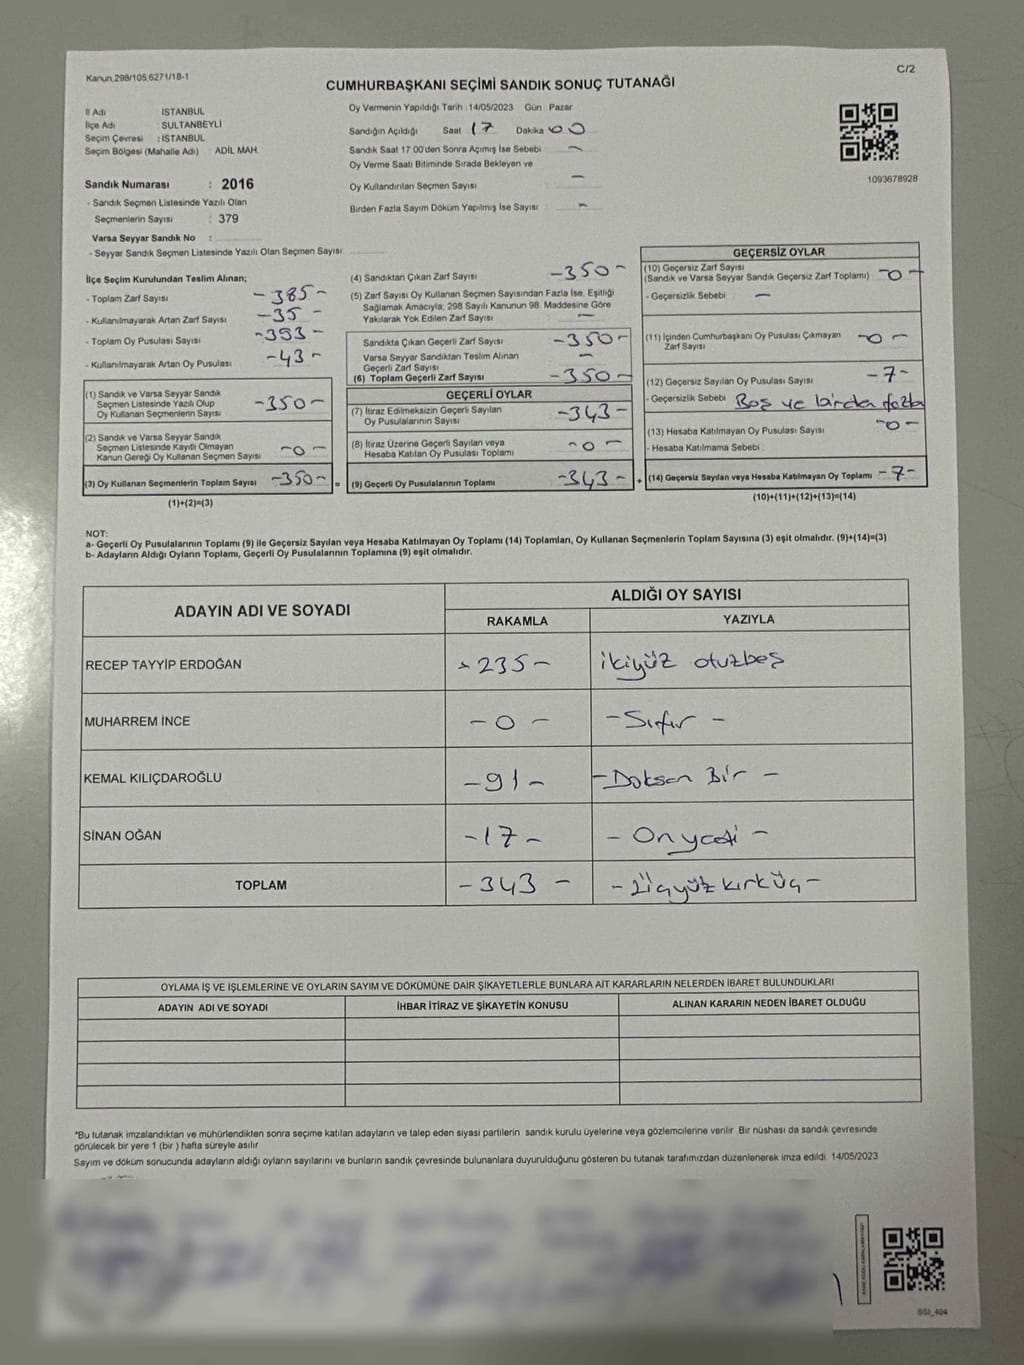 Kanun.298/105,6271/18-1
C/2
CUMHURBAŞKANI SEÇİMİ SANDIK SONUÇ TUTANAĞI
İl Adı : İSTANBUL
İlçe Adı : SULTANBEYLİ
Seçim Çevresi : İSTANBUL
Seçim Bölgesi (Mahalle Adı) : ADİL MAH.
Sandık Numarası : 2016
- Sandık Seçmen Listesinde Yazılı Olan
Seçmenlerin Sayısı : 379
Varsa Seyyar Sandık No :
- Seyyar Sandık Seçmen Listesinde Yazılı Olan Seçmen Sayısı:
Oy Vermenin Yapıldığı Tarih : 14/05/2023 Gün : Pazar
Sandığın Açıldığı Saat 17 Dakika 00
Sandık Saat 17:00'den Sonra Açımış İse Sebebi -
Oy Verme Saati Bitiminde Sırada Bekleyen ve
Oy Kullandırılan Seçmen Sayısı -
Birden Fazla Sayım Döküm Yapılmış İse Sayısı : -
1093678928
İlçe Seçim Kurulundan Teslim Alınan;
- Toplam Zarf Sayısı -385-
- Kullanılmayarak Artan Zarf Sayısı -35-
- Toplam Oy Pusulası Sayısı -393-
- Kullanılmayarak Artan Oy Pusulası -43-
(1) Sandık ve Varsa Seyyar Sandık
Seçmen Listesinde Yazılı Olup
Oy Kullanan Seçmenlerin Sayısı -350-
(2) Sandık ve Varsa Seyyar Sandık
Seçmen Listesinde Kayıtlı Olmayan
Kanun Gereği Oy Kullanan Seçmen Sayısı -0-
(3) Oy Kullanan Seçmenlerin Toplam Sayısı -350- =
(1)+(2)=(3)
(4) Sandıktan Çıkan Zarf Sayısı -350-
(5) Zarf Sayısı Oy Kullanan Seçmen Sayısından Fazla İse, Eşitliği
Sağlamak Amacıyla; 298 Sayılı Kanunun 98. Maddesine Göre
Yakılarak Yok Edilen Zarf Sayısı -
Sandıkta Çıkan Geçerli Zarf Sayısı -350-
Varsa Seyyar Sandıktan Teslim Alınan
Geçerli Zarf Sayısı -
(6) Toplam Geçerli Zarf Sayısı -350-
GEÇERLİ OYLAR
(7) İtiraz Edilmeksizin Geçerli Sayılan
Oy Pusulalarının Sayısı -343-
(8) İtiraz Üzerine Geçerli Sayılan veya
Hesaba Katılan Oy Pusulası Toplamı -0-
(9) Geçerli Oy Pusulalarının Toplamı -343- +
GEÇERSİZ OYLAR
(10) Geçersiz Zarf Sayısı
(Sandık ve Varsa Seyyar Sandık Geçersiz Zarf Toplamı) -0-
- Geçersizlik Sebebi : -
(11) İçinden Cumhurbaşkanı Oy Pusulası Çıkmayan
Zarf Sayısı -0-
(12) Geçersiz Sayılan Oy Pusulası Sayısı -7-
- Geçersizlik Sebebi Boş ve birden fazla
(13) Hesaba Katılmayan Oy Pusulası Sayısı -0-
- Hesaba Katılmama Sebebi :
(14) Geçersiz Sayılan veya Hesaba Katılmayan Oy Toplamı -7-
(10)+(11)+(12)+(13)=(14)
NOT:
a- Geçerli Oy Pusulalarının Toplamı (9) ile Geçersiz Sayılan veya Hesaba Katılmayan Oy Toplamı (14) Toplamları, Oy Kullanan Seçmenlerin Toplam Sayısına (3) eşit olmalıdır. (9)+(14)=(3)
b- Adayların Aldığı Oyların Toplamı, Geçerli Oy Pusulalarının Toplamına (9) eşit olmalıdır.
ADAYIN ADI VE SOYADI
ALDIĞI OY SAYISI
RAKAMLA YAZIYLA
RECEP TAYYİP ERDOĞAN -235- ikiyüz otuzbeş
MUHARREM İNCE -0- -Sıfır-
KEMAL KILIÇDAROĞLU -91- -Doksan Bir-
SİNAN OĞAN -17- -Onyedi-
TOPLAM -343- -Üçyüz kırk üç-
OYLAMA İŞ VE İŞLEMLERİNE VE OYLARIN SAYIM VE DÖKÜMÜNE DAİR ŞİKAYETLERLE BUNLARA AİT KARARLARIN NELERDEN İBARET BULUNDUKLARI
ADAYIN ADI VE SOYADI İHBAR İTİRAZ VE ŞİKAYETİN KONUSU ALINAN KARARIN NEDEN İBARET OLDUĞU
*Bu tutanak imzalandıktan ve mühürlendikten sonra seçime katılan adayların ve talep eden siyasi partilerin sandık kurulu üyelerine veya gözlemcilerine verilir. Bir nüshası da sandık çevresinde
görülecek bir yere 1 (bir ) hafta süreyle asılır.
Sayım ve döküm sonucunda adayların aldığı oyların sayılarını ve bunların sandık çevresinde bulunanlara duyurulduğunu gösteren bu tutanak tarafımızdan düzenlenerek imza edildi. 14/05/2023
SSI_404